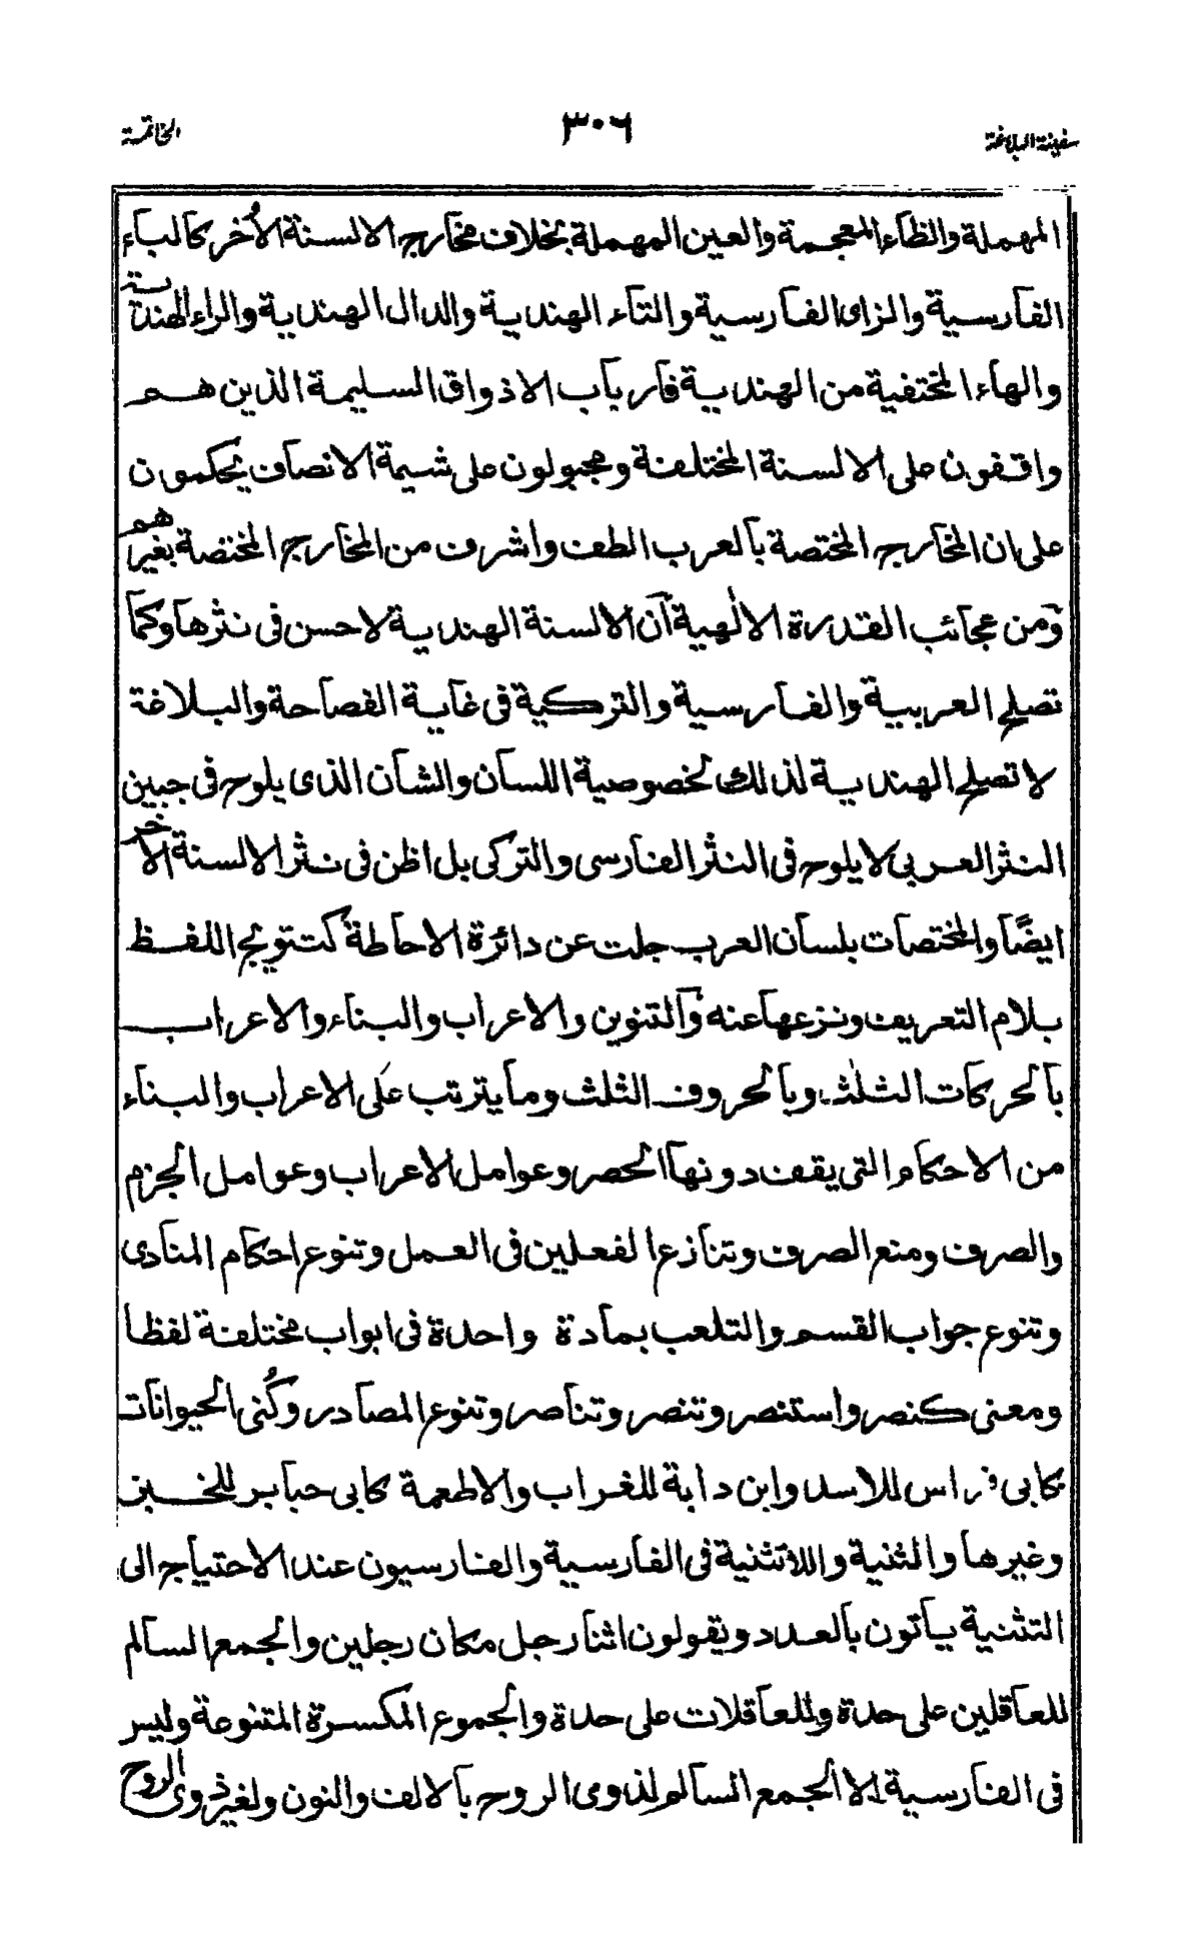 سفينة البلاغة
٣٠٦
الخاتمة
المهملة والظاء المعجمة والعين المهملة بخلاف مخارج الالسنة الأخر كالباء
الفارسية والزاى الفارسية والتاء الهندية والدال الهندية والراء الهندية
والهاء المختفية من الهندية فارباب الاذواق السليمة الذين هم
واقفون على الالسنة المختلفة ومجبولون على شيمة الانصاف يحكمون
على ان المخارج المختصة بالعرب الطف واشرف من المخارج المختصة بغيرهم
ومن عجائب القدرة الالٰهية ان الالسنة الهندية لاحسن فى نثرها وكما
تصلح العربية والفارسية والتركية فى غاية الفصاحة والبلاغة
لا تصلح الهندية لذلك لخصوصية اللسان والشان الذى يلوح فى جبين
النثر العربى لا يلوح فى النثر الفارسى والتركى بل اظن فى نثر الالسنة الاخر
ايضًا والمختصات بلسان العرب جلت عن دائرة الاحاطة كتتويج اللفظ
بلام التعريف ونزعها عنه والتنوين والاعراب والبناء والاعراب
بالحركات الثلٰث وبالحروف الثلث وما يترتب على الاعراب والبناء
من الاحكام التى يقف دونها الحصر وعوامل الاعراب وعوامل الجزم
والصرف ومنع الصرف وتنازع الفعلين فى العمل وتنوع احكام المنادى
وتنوع جواب القسم والتلعب بمادة واحدة فى ابواب مختلفة لفظا
ومعنى كنصر واستنصر وتنصر وتناصر وتنوع المصادر وكُنى الحيوانات
كابى فراس للاسد وابن داية للغراب والاطعمة كابى جابر للخبز
وغيرها والثنية واللاتثنية فى الفارسية والفارسيون عند الاحتياج الى
التثنية ياتون بالعدد ويقولون اثنا رجل مكان رجلين والجمع السالم
للعاقلين على حدة وللعاقلات على حدة والجموع المكسرة المتنوعة وليس
فى الفارسية الا الجمع السالم لذوى الروح بالالف والنون ولغير ذوى الروح